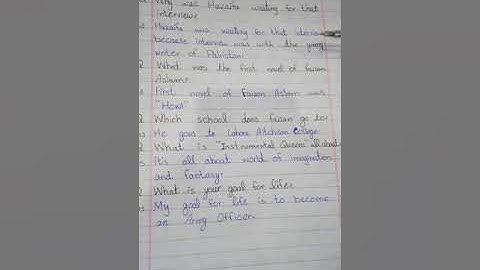 Why was Huzaifa waiting for that
interview?
Huzaifa was waiting for that
because interview was with the young
writer of Pakistan.
What was the first novel of Faizan
Aslam?
First novel of Faizan Aslam was
"Howl"
Which school does Faizan go to?
He goes to Lahore Aitchison College
What is "Instrumental Queens" all about
It's all about world of imagination
and fantasy.
What is your goal for life?
My goal for life is to become
an Army Officer.